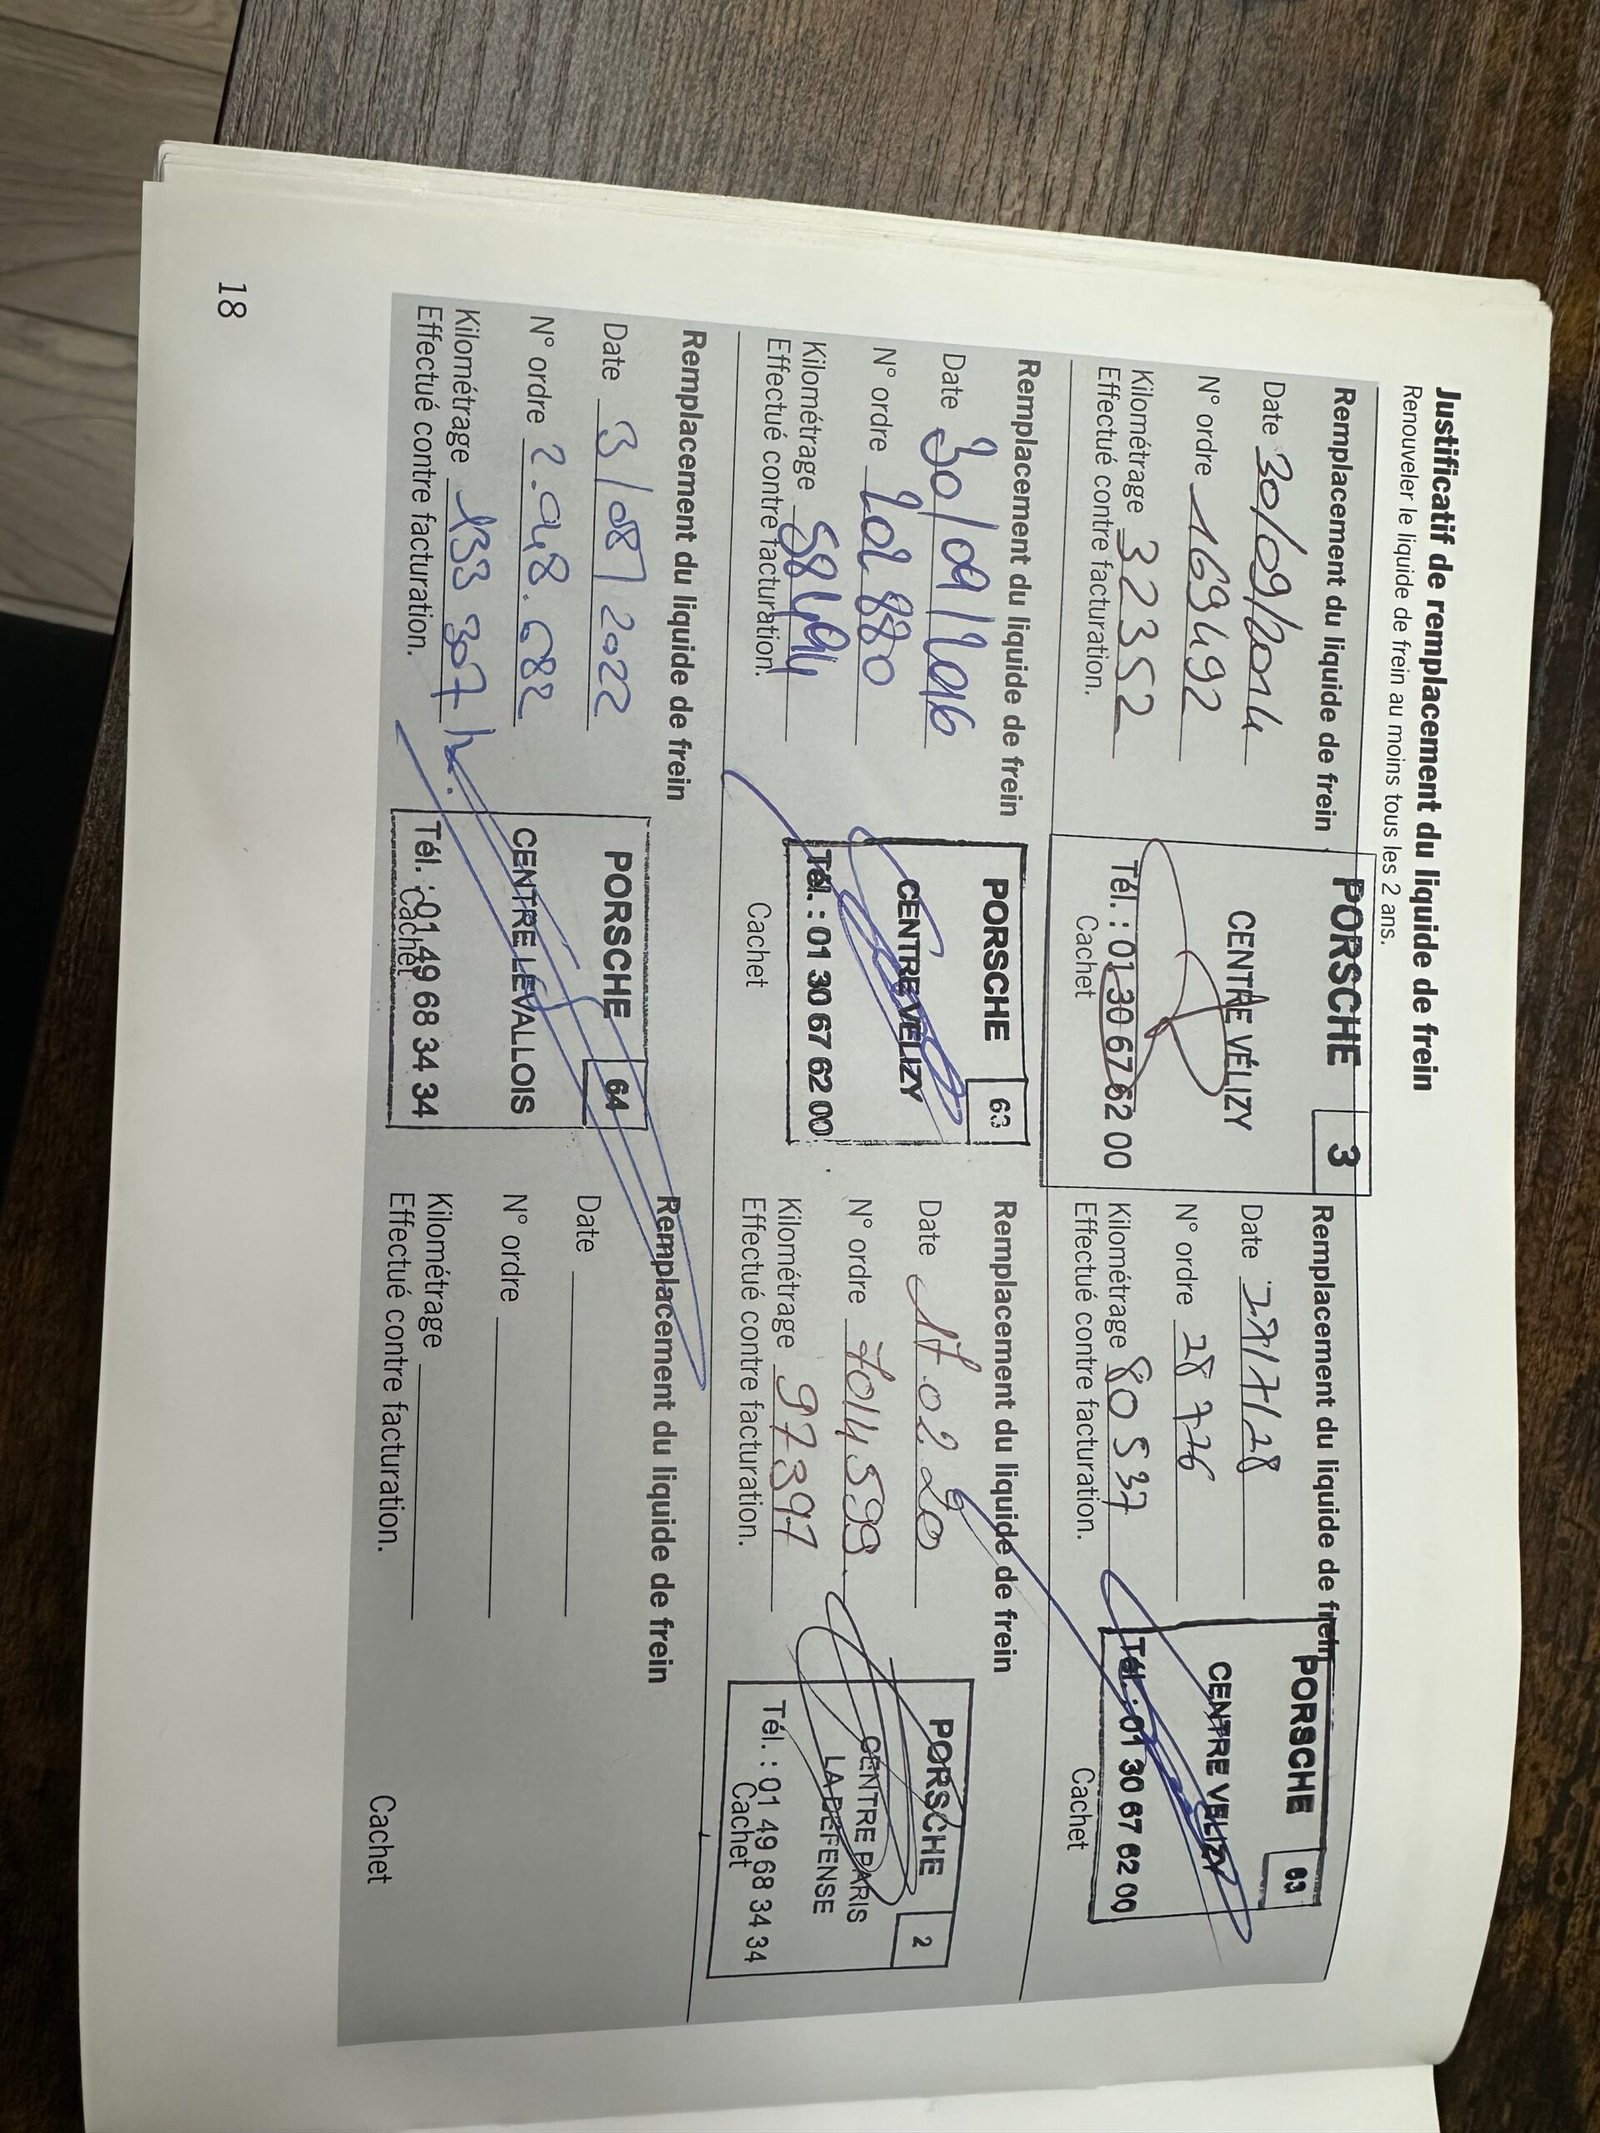 Justificatif de remplacement du liquide de frein
Renouveler le liquide de frein au moins tous les 2 ans.
Remplacement du liquide de frein
Date 30/09/2014
N° ordre 169492
Kilométrage 32352
Effectué contre facturation.
PORSCHE 3
CENTRE VÉLIZY
Tél. : 01 30 67 62 00
Cachet
Remplacement du liquide de frein
Date
N° ordre 28776
Kilométrage 80537
Effectué contre facturation.
PORSCHE 63
CENTRE VELIZY
Tél. : 01 30 67 62 00
Cachet
Remplacement du liquide de frein
Date 30/09/2016
N° ordre 202880
Kilométrage 58494
Effectué contre facturation.
PORSCHE 63
CENTRE VÉLIZY
Tél. : 01 30 67 62 00
Cachet
Remplacement du liquide de frein
Date 17.02.20
N° ordre 7014599.
Kilométrage 97397
Effectué contre facturation.
PORSCHE 2
CENTRE PARIS
LA DEFENSE
Tél. : 01 49 68 34 34
Cachet
Remplacement du liquide de frein
Date 3/08/2022
N° ordre 2.048.682
Kilométrage 133 307
Effectué contre facturation.
PORSCHE 64
CENTRE LEVALLOIS
Tél. : 01 49 68 34 34
Cachet
Remplacement du liquide de frein
Date
N° ordre
Kilométrage
Effectué contre facturation.
Cachet
18